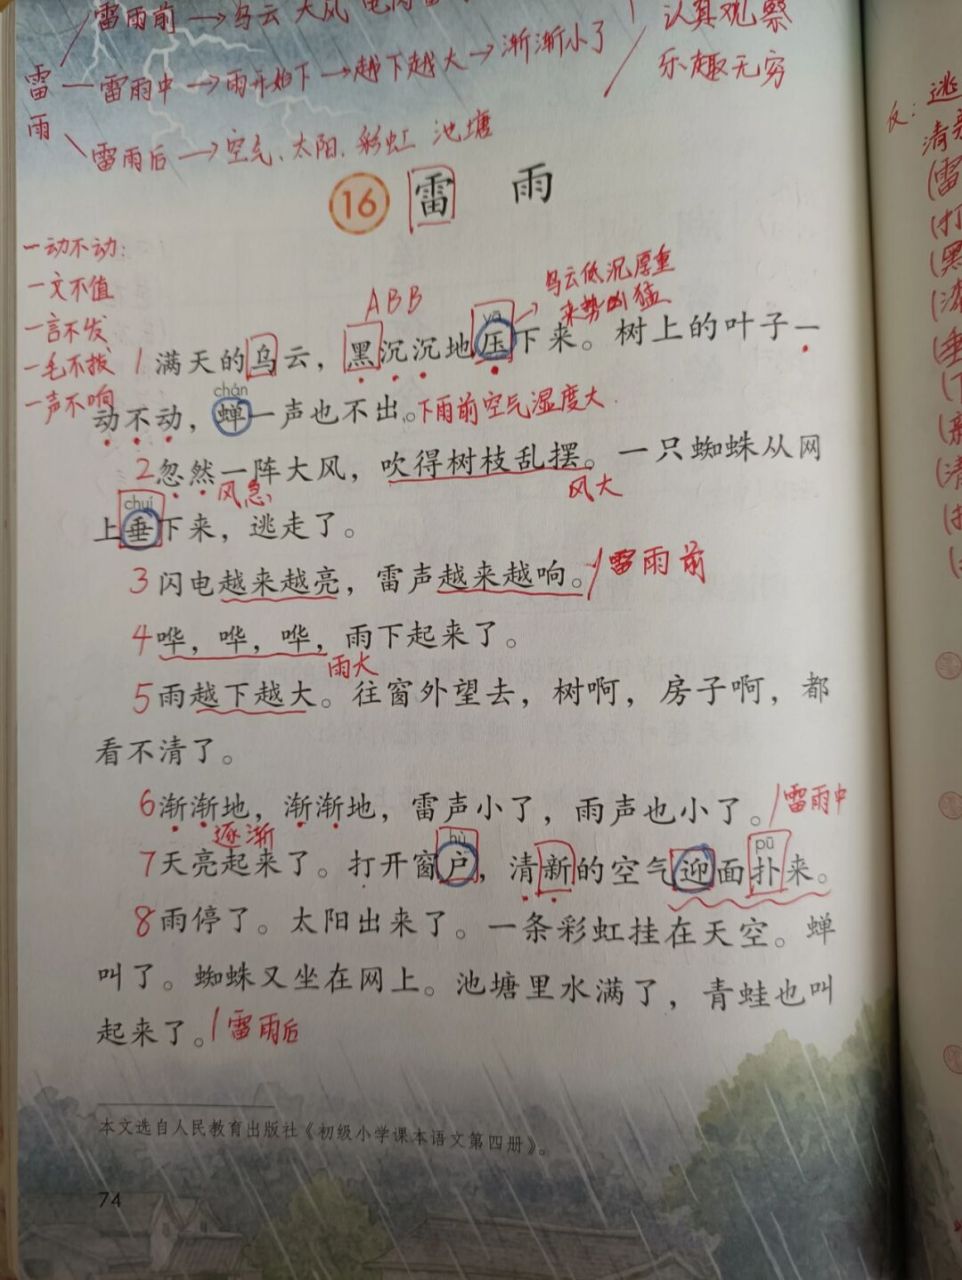 雷雨前→乌云 大风
认真观察
乐趣无穷
雷雨
雷雨中→雨开始下→越下越大→渐渐小了
雷雨后→空气、太阳、彩虹 池塘
16 雷 雨
一动不动:
一文不值
一言不发
一毛不拔
一声不响
ABB
乌云低沉厚重
来势凶猛
yā
1满天的乌云，黑沉沉地压下来。树上的叶子一
chán
动不动，蝉一声也不出。下雨前空气湿度大
2忽然一阵大风，吹得树枝乱摆。一只蜘蛛从网
风急
风大
chuí
上垂下来，逃走了。
3闪电越来越亮，雷声越来越响。/雷雨前
4哗，哗，哗，雨下起来了。
雨大
5雨越下越大。往窗外望去，树啊，房子啊，都
看不清了。
6渐渐地，渐渐地，雷声小了，雨声也小了。/雷雨中
逐渐
hù
pū
7天亮起来了。打开窗户，清新的空气迎面扑来。
8雨停了。太阳出来了。一条彩虹挂在天空。蝉
叫了。蜘蛛又坐在网上。池塘里水满了，青蛙也叫
起来了。/雷雨后
本文选自人民教育出版社《初级小学课本语文第四册》。
74
反:逃
清新
(雷
(打
(黑
(垂
(下